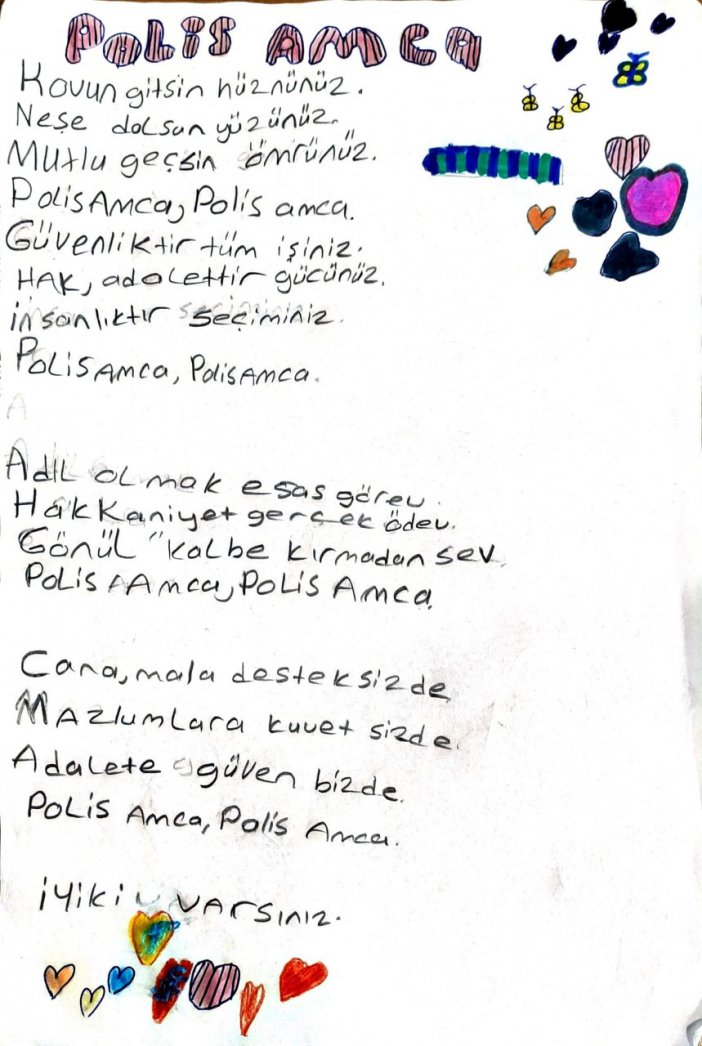 POLİS AMCA
Kovun gitsin hüznünüz.
Neşe dolsun yüzünüz.
Mutlu geçsin ömrünüz.
Polis Amca, Polis amca.
Güvenliktir tüm işiniz.
HAK, adalettir gücünüz.
insanlıktır seçiminiz.
Polis Amca, Polis Amca.
Adil olmak esas görev.
Hakkaniyet gerçek ödev.
Gönül "kalbe kırmadan sev.
Polis Amca, Polis Amca.
Cana, mala destek sizde
Mazlumlara kuvet sizde.
Adalete güven bizde.
Polis Amca, Polis Amca.
iyiki varsınız.